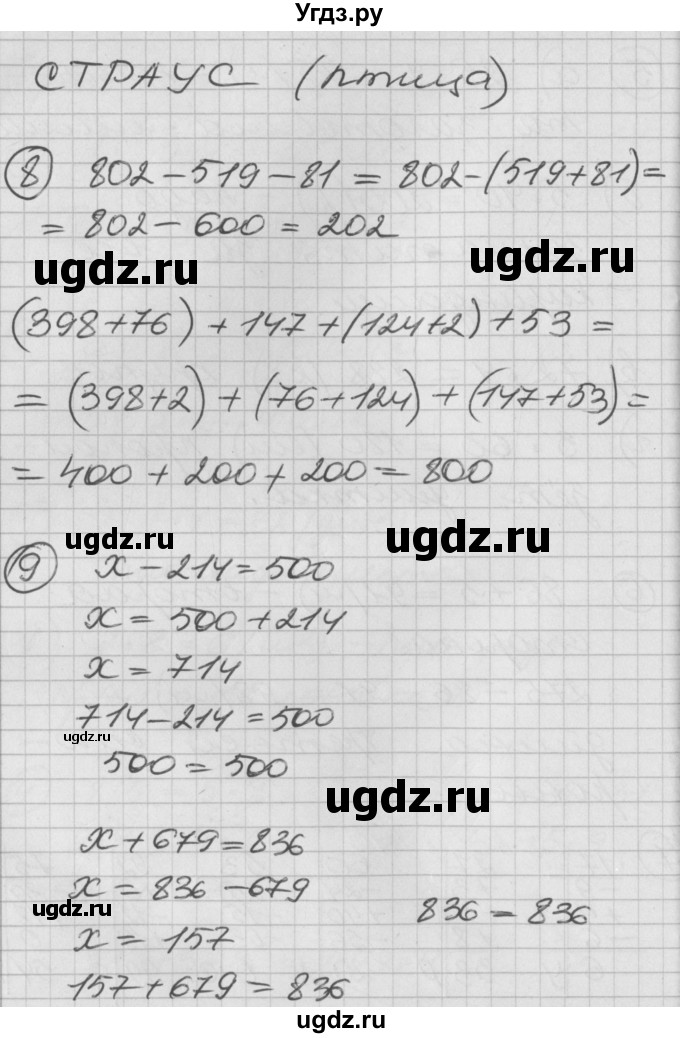 Угдз.ру
СТРАУС (птица)
8 802-519-81 = 802-(519+81)=
= 802-600 = 202
ugdz.ru ugdz.ru
(398+76)+147+(124+2)+53 =
= (398+2)+(76+124)+(147+53)=
= 400+200+200=800
ugdz.ru ugdz.ru
9 x-214=500
x = 500+214
x = 714
714-214=500
ugdz.ru
500=500
ugdz.ru
x+679=836
x = 836-679
ugdz.ru
836=836
x = 157
157+679=836
ugdz.ru